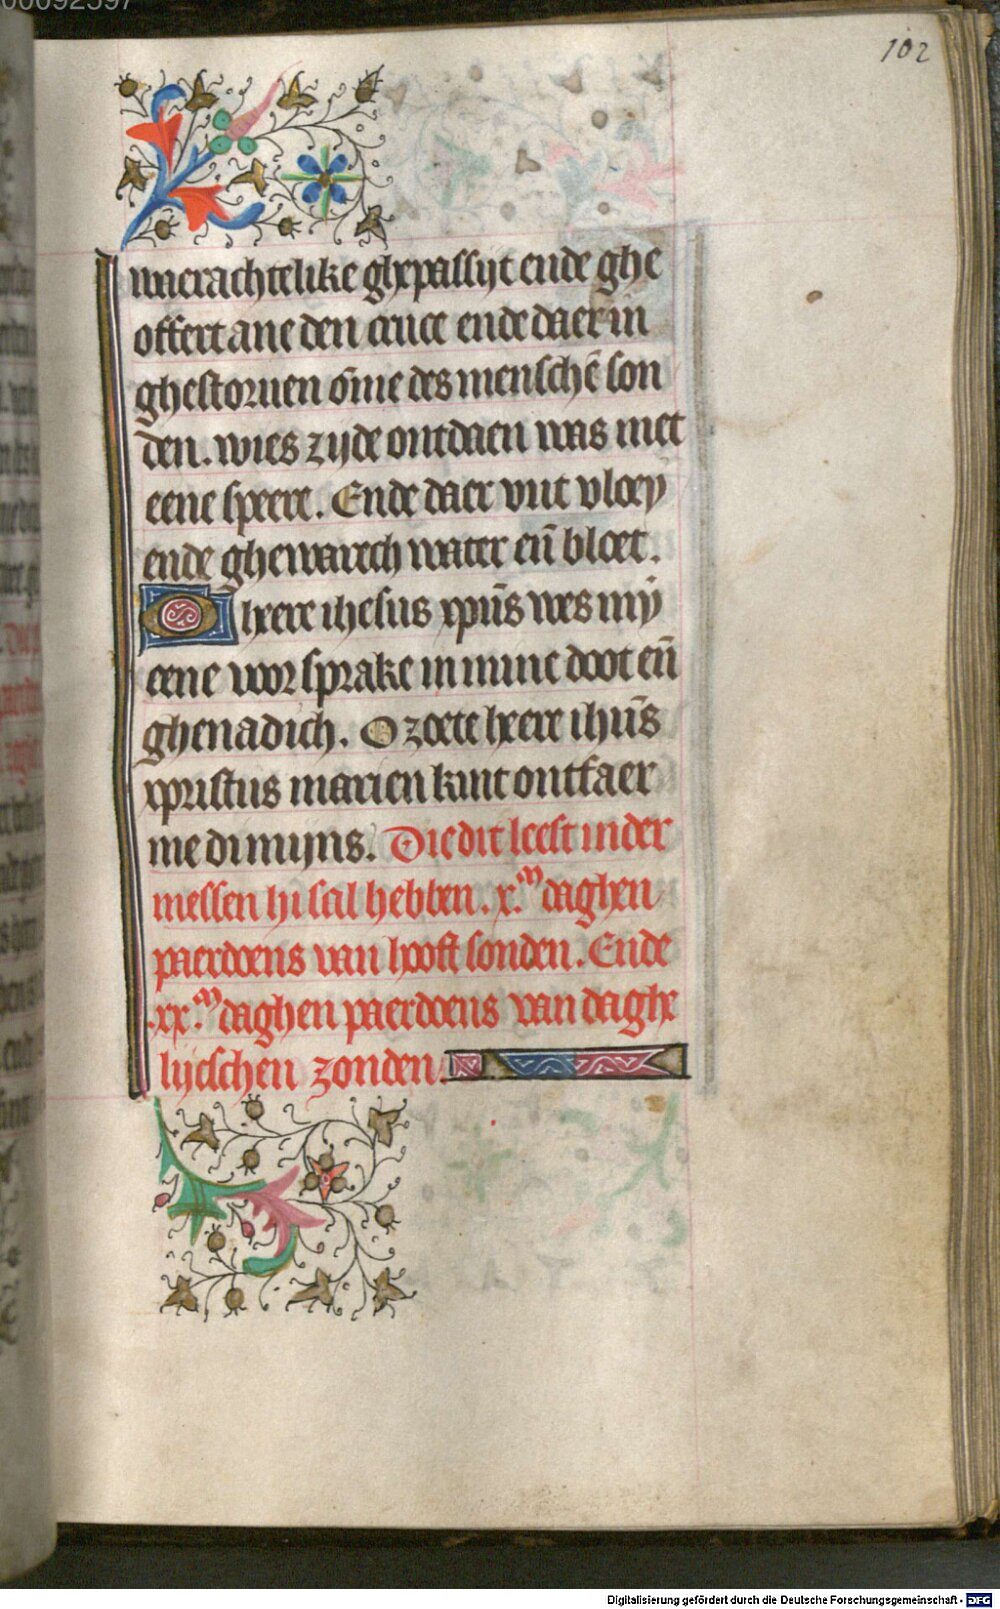 00092597
102
waerachtelike ghepassijt ende ghe
offert ane den cruce ende daer in
ghestoruen om̄e des menschē son
den. wies zijde ontdaen was met
eene speere. Ende daer vut vloey
ende ghewarech water en̄ bloet.
O heere ihesus xpūs wes mȳ
eene voorsprake in mine doot en̄
ghenadich. O zoete heere ihūs
xpristus marien kint ontfaer
me dimijns. Die dit leest in der
messen hi sal hebben .x.ᵐ daghen
paerdoens van hooft sonden. Ende
.xx.ᵐ daghen paerdoens van daghe
lijcschen zonden.
Digitalisierung gefördert durch die Deutsche Forschungsgemeinschaft - DFG